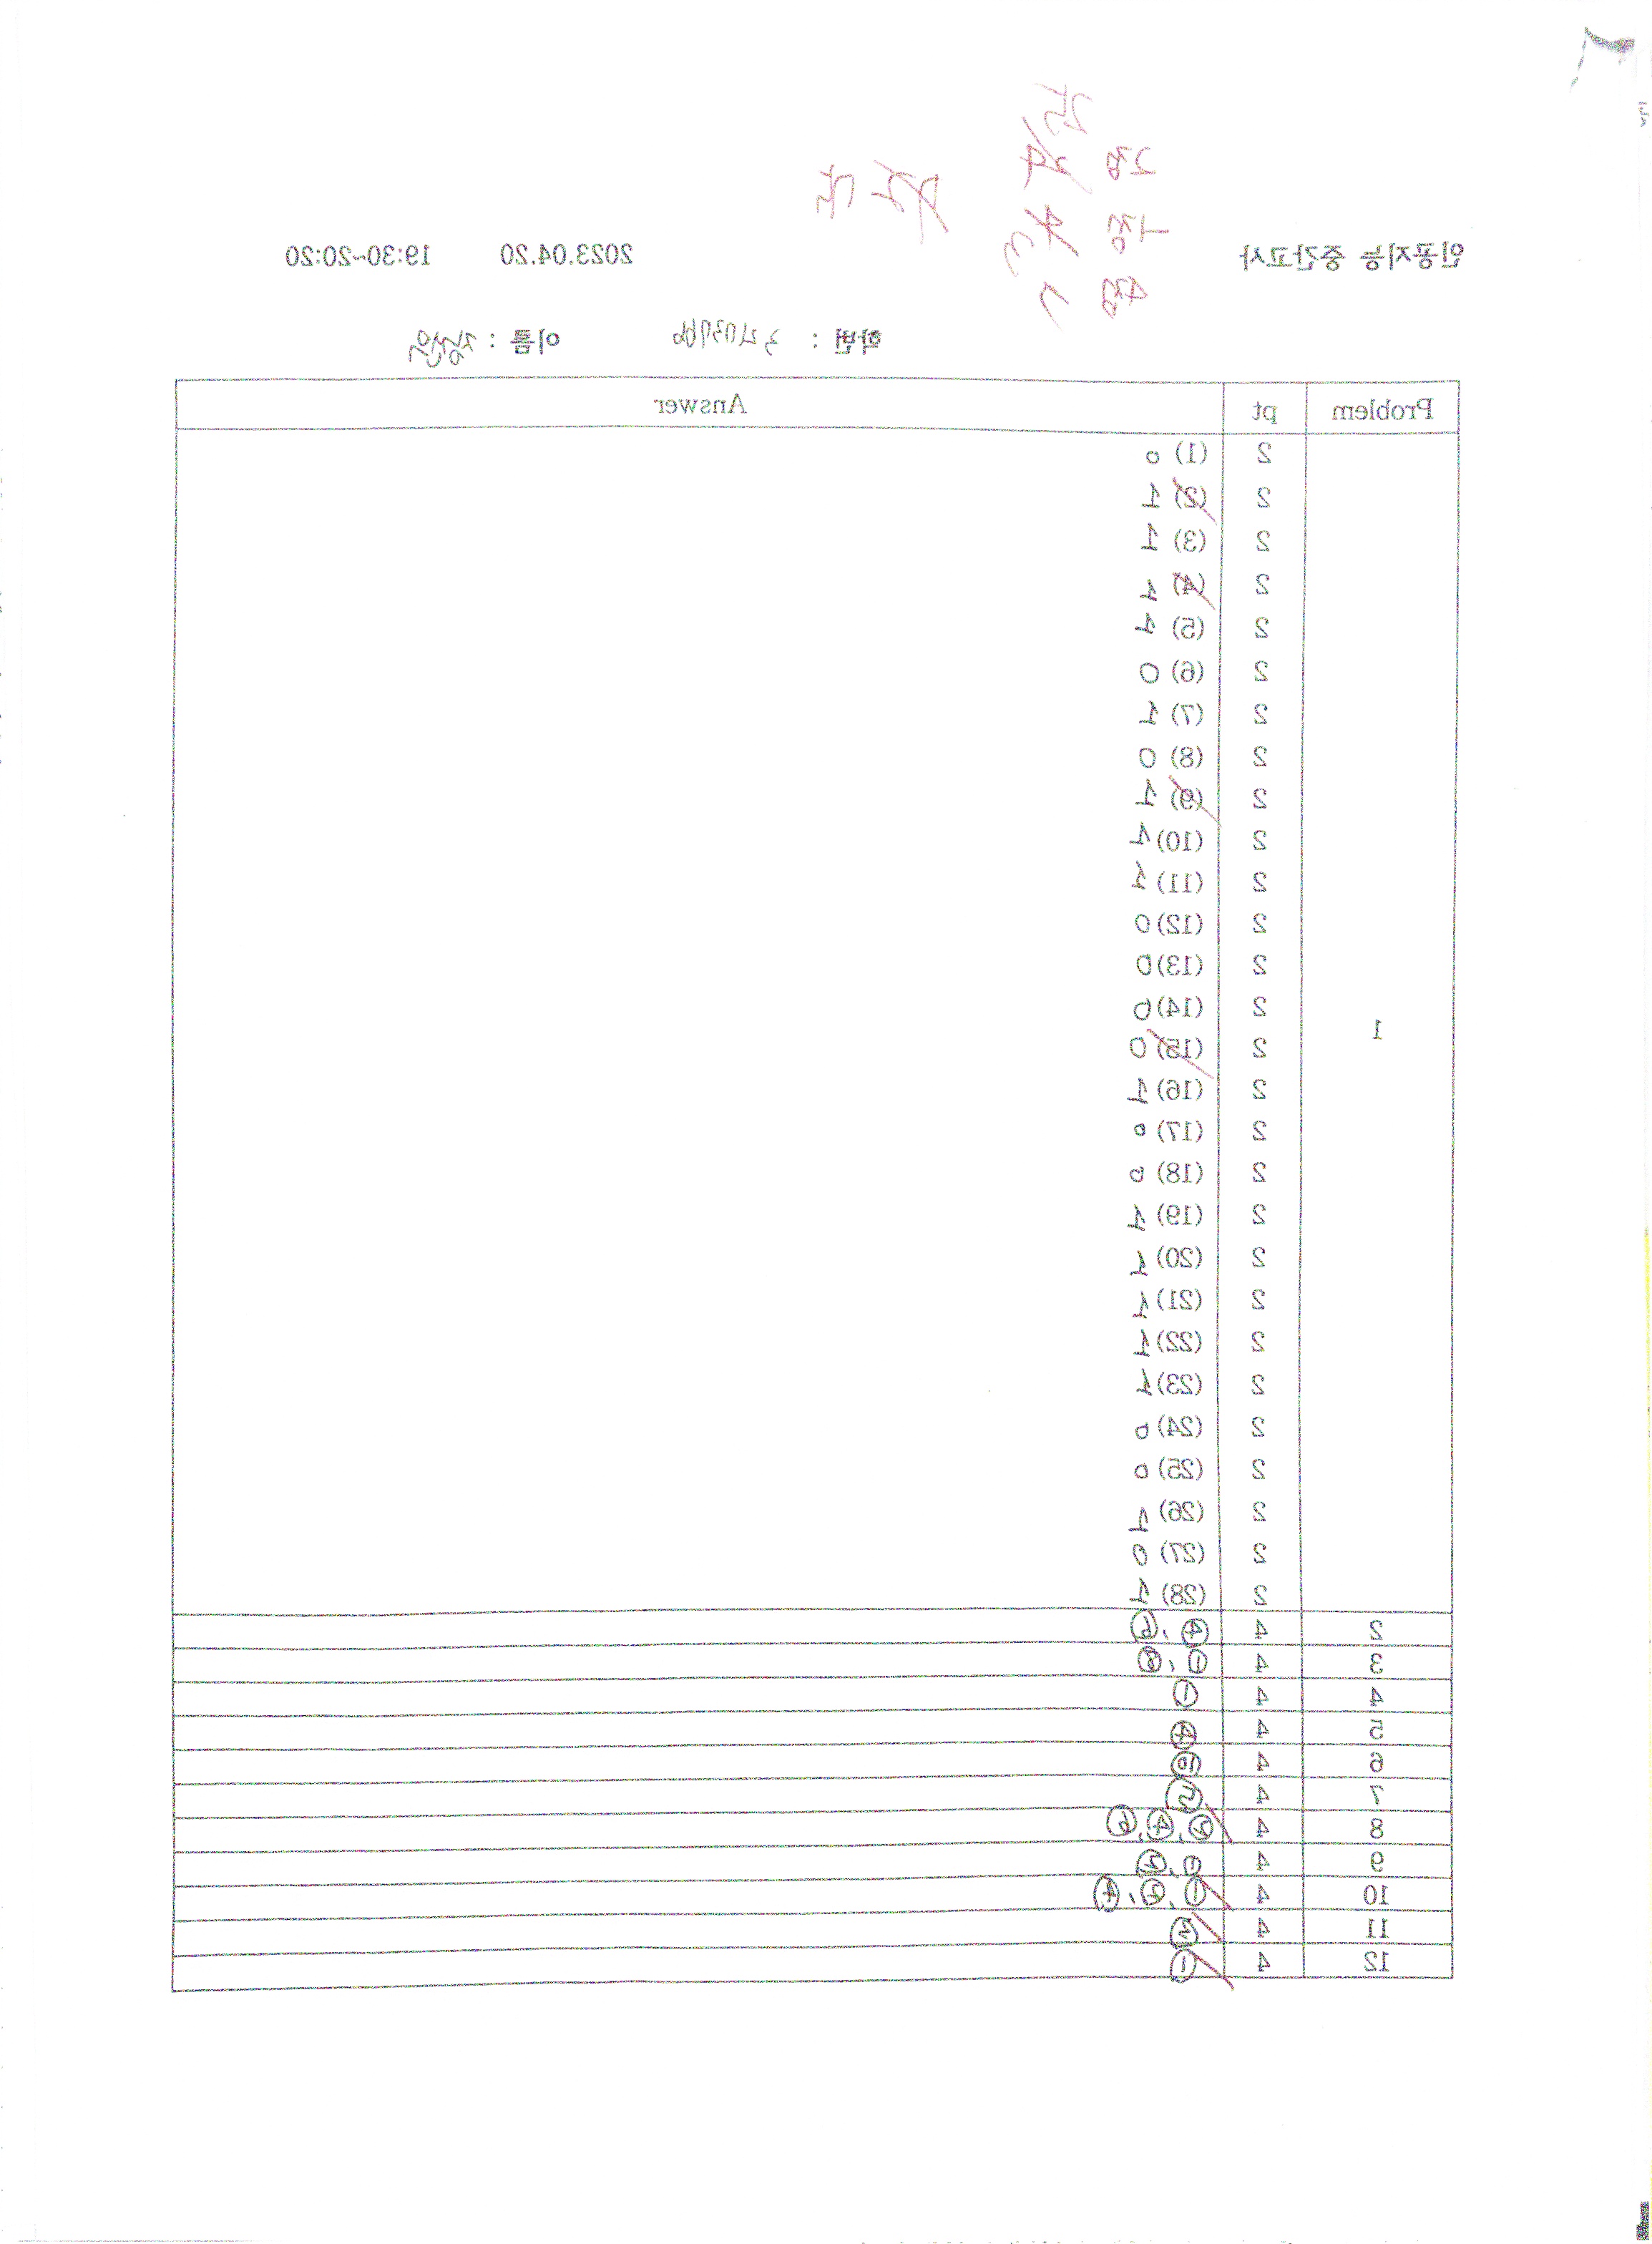 인공지능 중간고사 2023.04.20 19:30~20:20
학번 : 이름 :
Problem pt Answer
1
2 (1) 0
2 (2) 1
2 (3) 1
2 (4) 1
2 (5) 1
2 (6) 0
2 (7) 1
2 (8) 0
2 (9) 1
2 (10) 1
2 (11) 1
2 (12) 0
2 (13) 0
2 (14) 0
2 (15) 0
2 (16) 1
2 (17) 0
2 (18) 0
2 (19) 1
2 (20) 1
2 (21) 1
2 (22) 1
2 (23) 1
2 (24) 0
2 (25) 0
2 (26) 1
2 (27) 0
2 (28) 1
2 4 ④,
3 4 ①,
4 4 ①
5 4 ④
6 4
7 4
8 4 ④,
9 4 ①,
10 4 ①, ④
11 4
12 4 ①